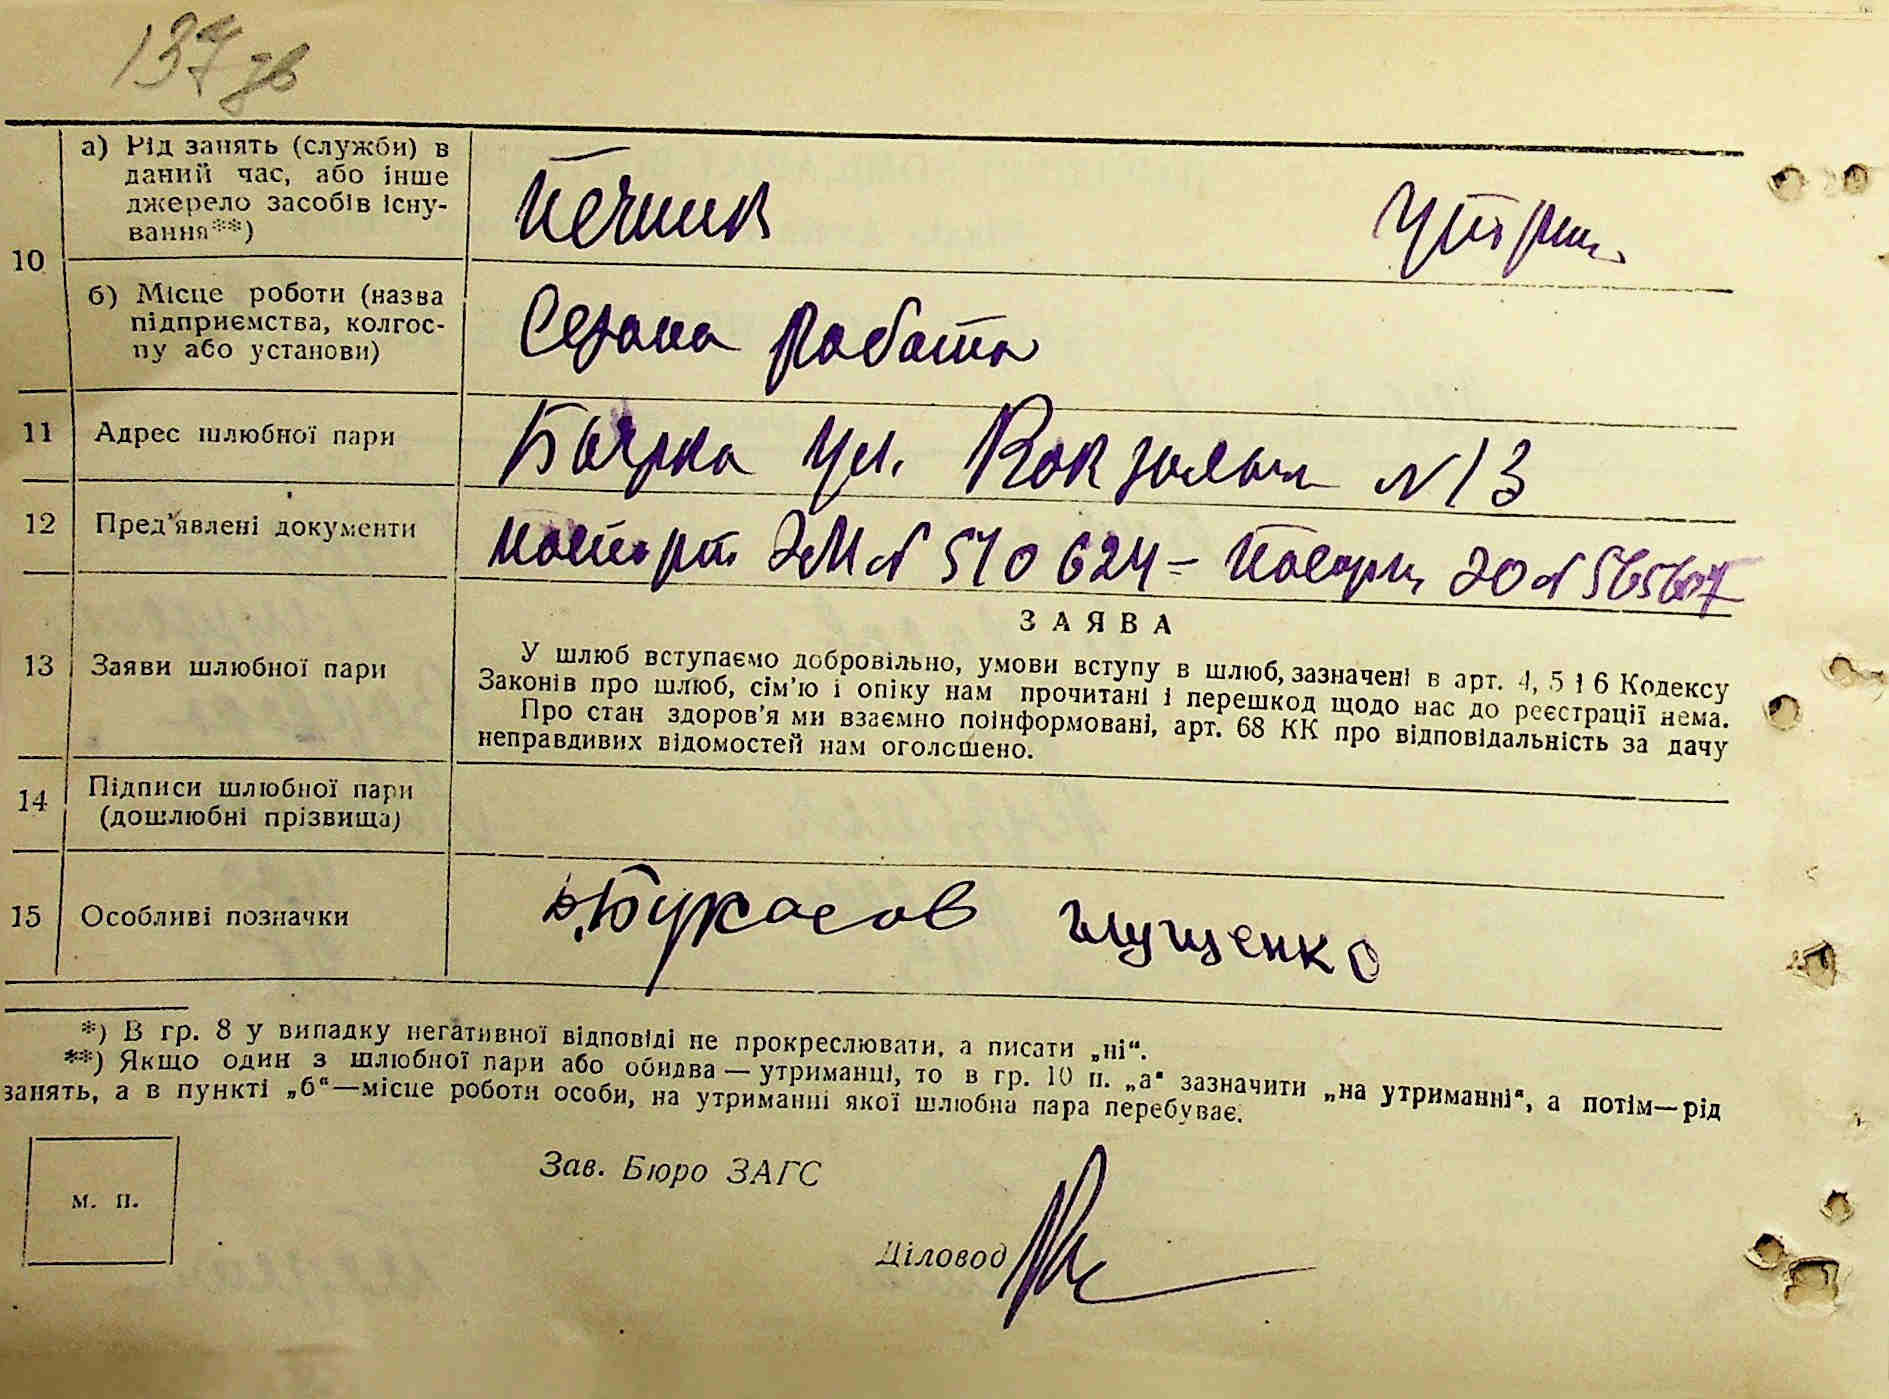 137 зв
10
а) Рід занять (служби) в
даний час, або інше
джерело засобів існу-
вання**)
Печник
Утрим.
б) Місце роботи (назва
підприємства, колгос-
пу або установи)
Сезона работа
11
Адрес шлюбної пари
Боярка ул. Вокзальн N 13
12
Пред'явлені документи
Паспорт ЭМ N 510624 – Паспорт ЭО N 565607
13
Заяви шлюбної пари
ЗАЯВА
У шлюб вступаємо добровільно, умови вступу в шлюб, зазначені в арт. 4, 5 і 6 Кодексу
Законів про шлюб, сім'ю і опіку нам прочитані і перешкод щодо нас до реєстрації нема.
Про стан здоров'я ми взаємно поінформовані, арт. 68 КК про відповідальність за дачу
неправдивих відомостей нам оголошено.
14
Підписи шлюбної пари
(дошлюбні прізвища)
15
Особливі позначки
Букасов Глущенко
*) В гр. 8 у випадку негативної відповіді не прокреслювати, а писати „ні“.
**) Якщо один з шлюбної пари або обидва — утриманці, то в гр. 10 п. „а“ зазначити „на утриманні“, а потім—рід
занять, а в пункті „б“—місце роботи особи, на утриманні якої шлюбна пара перебуває.
Зав. Бюро ЗАГС
м. п.
Діловод